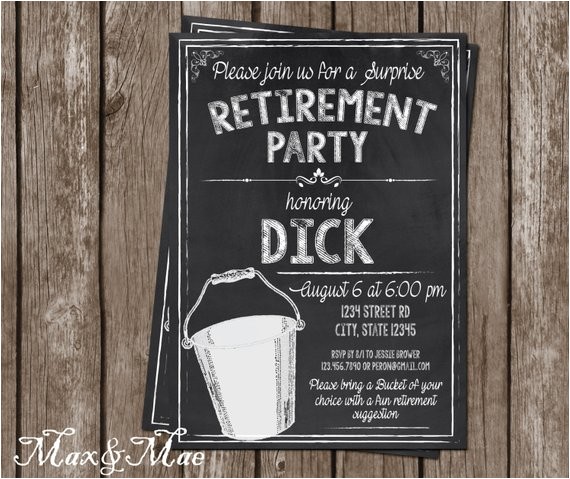 Please join us for a Surprise
RETIREMENT
PARTY
honoring
DICK
August 6 at 6:00 pm
1234 STREET RD
CITY, STATE 12345
RSVP BY 8/1 TO JESSIE BROWER
123.456.7890 OR PERON@GMAIL.COM
Please bring a Bucket of your
choice with a fun retirement
suggestion
Max&Mae